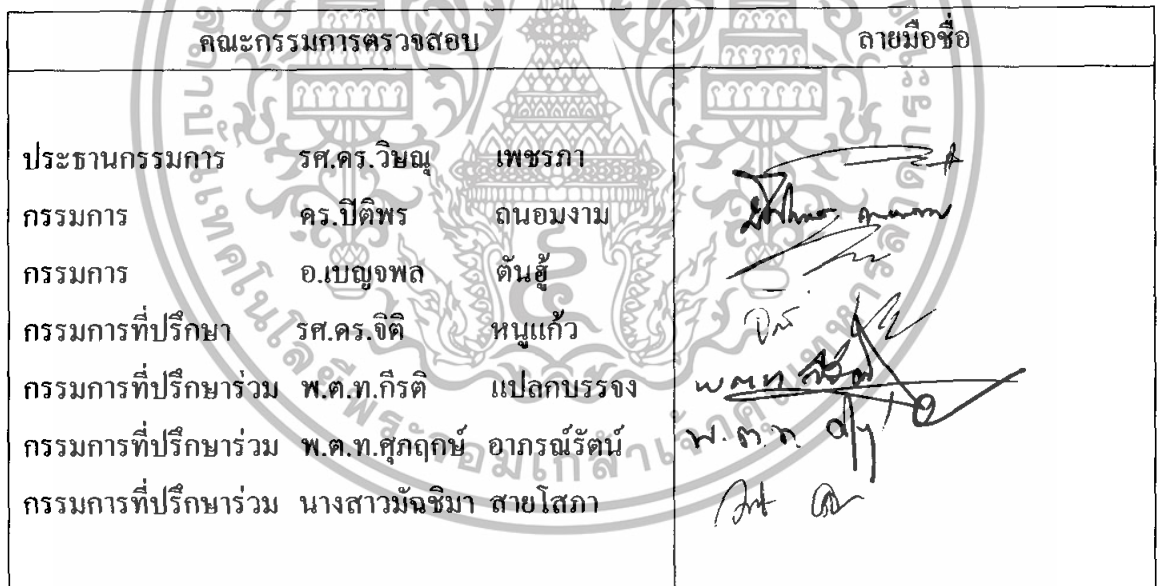 คณะกรรมการตรวจสอบ ลายมือชื่อ
ประธานกรรมการ รศ.ดร.วิษณุ เพชรภา
กรรมการ ดร.ปิติพร ถนอมงาม
กรรมการ อ.เบญจพล ตันฮู้
กรรมการที่ปรึกษา รศ.ดร.จิติ หนูแก้ว
กรรมการที่ปรึกษาร่วม พ.ต.ท.กีรติ แปลกบรรจง
กรรมการที่ปรึกษาร่วม พ.ต.ท.ศุภฤกษ์ อาภรณ์รัตน์
กรรมการที่ปรึกษาร่วม นางสาวมัฉชิมา สายโสภา